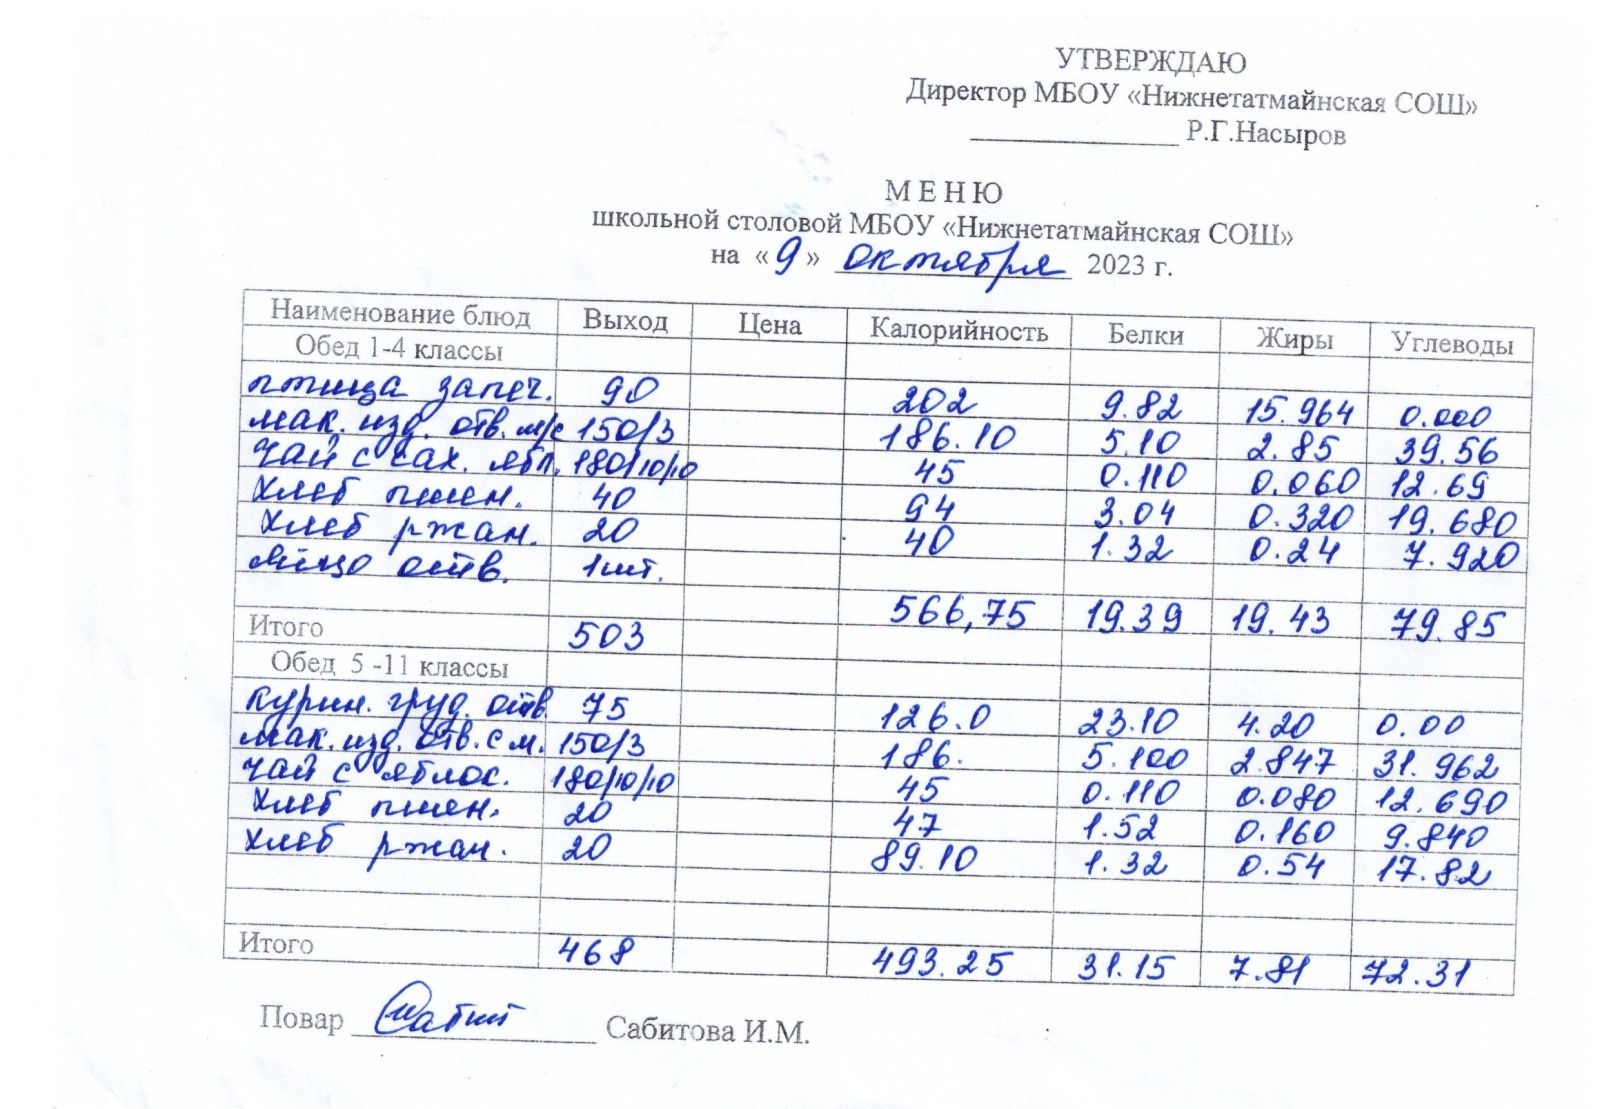 УТВЕРЖДАЮ
Директор МБОУ «Нижнетатмайнская СОШ»
______________ Р.Г.Насыров
М Е Н Ю
школьной столовой МБОУ «Нижнетатмайнская СОШ»
на «9» октября 2023 г.
Наименование блюд Выход Цена Калорийность Белки Жиры Углеводы
Обед 1-4 классы
птица запеч. 90 202 9.82 15.964 0.000
мак. изд. отв. м/с 150/3 186.10 5.10 2.85 39.56
Чай с сах. ябл. 180/10/10 45 0.110 0.060 12.69
Хлеб пшен. 40 94 3.04 0.320 19.680
Хлеб ржан. 20 40 1.32 0.24 7.920
яйцо отв. 1шт.
Итого 503 566,75 19.39 19.43 79.85
Обед 5 -11 классы
курин. груд. отв. 75 126.0 23.10 4.20 0.00
мак. изд. отв. с м. 150/3 186. 5.100 2.847 31.962
чай с яблос. 180/10/10 45 0.110 0.080 12.690
Хлеб пшен. 20 47 1.52 0.160 9.840
Хлеб ржан. 20 89.10 1.32 0.54 17.82
Итого 468 493.25 31.15 7.81 72.31
Повар Сабит Сабитова И.М.